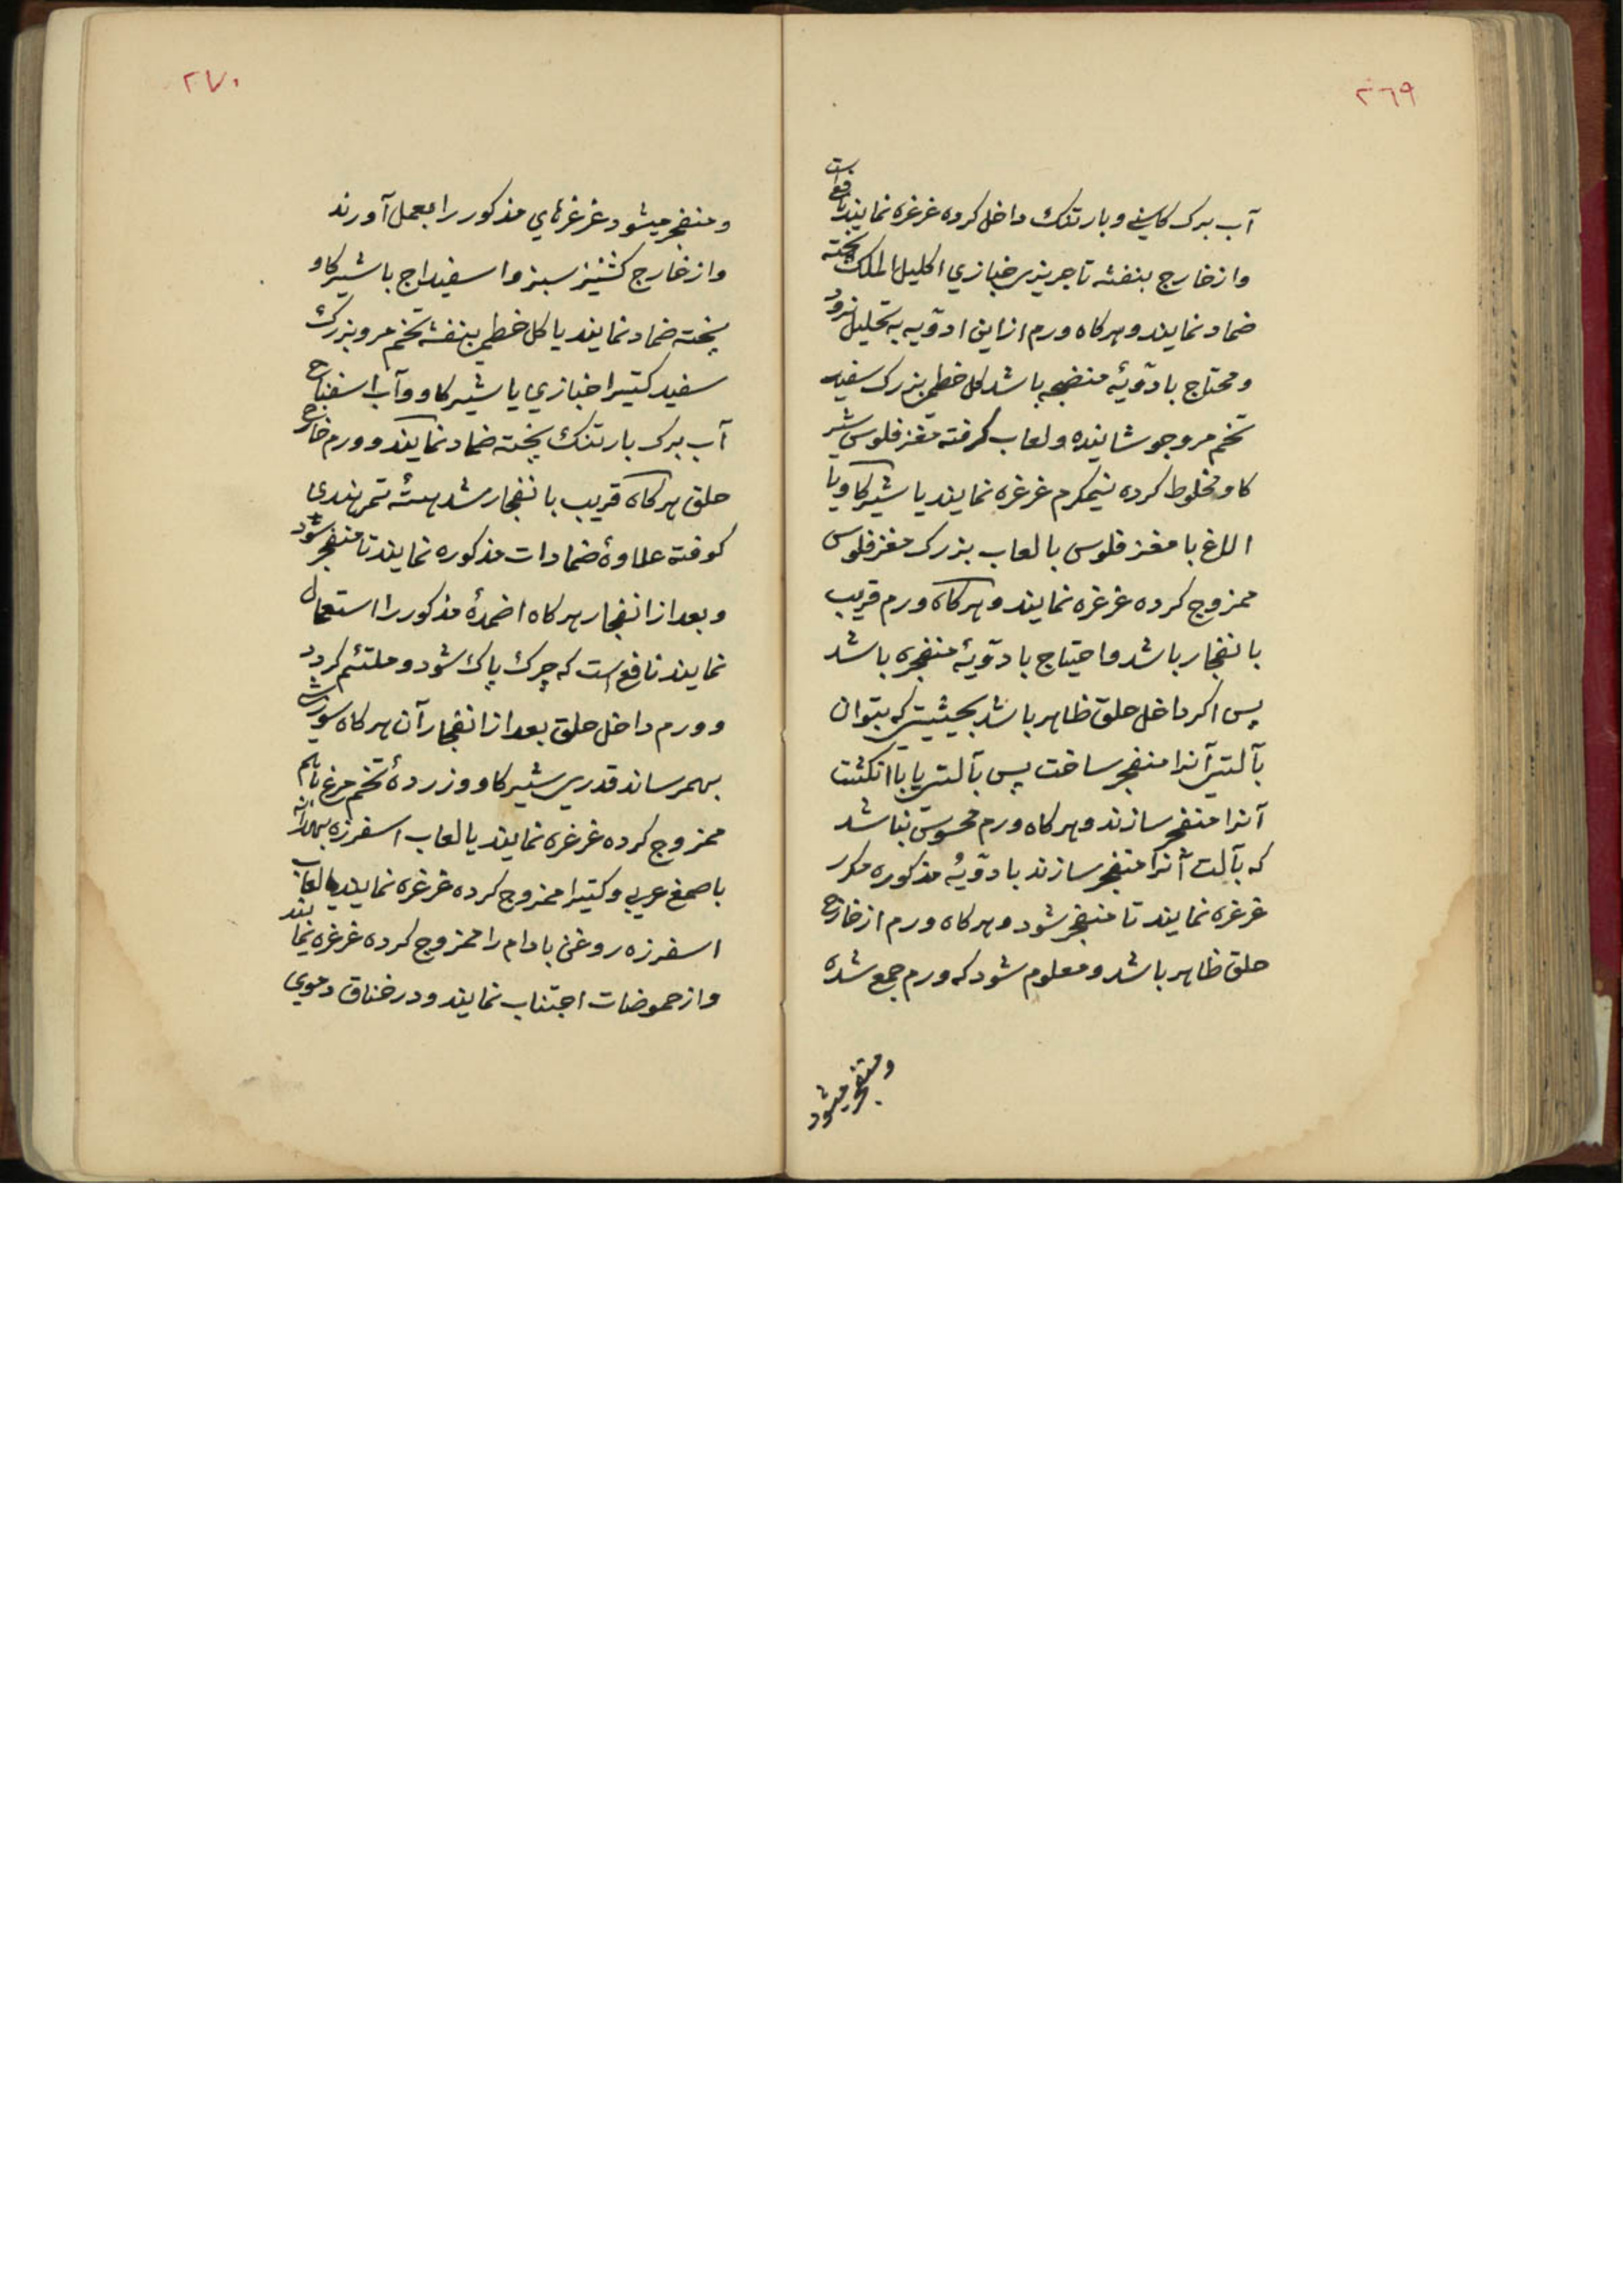 ٢٦٩
آب برک کاسنے و بارتنک داخل کرده غرغره نمایند نافع است
و از خارج بنفشه تاجریزی خبازي اکلیل الملک پخته
ضماد نمایند و هرکاه ورم از این ادویه به تحلیل نرود
و محتاج بادویهٔ منضجه باشد کل خطمی بزرک سفید
تخم مرو جوشانیده و لعاب کرفته مغز فلوس شیر
کاو مخلوط کرده نیمکرم غرغره نمایند یا شیر کاو یا
الاغ با مغز فلوس یا لعاب بزرک مغز فلوس
ممزوج کرده غرغره نمایند و هرکاه ورم قریب
بانفجار باشد و احتیاج بادویهٔ منفجره باشد
پس اکر داخل حلق ظاهر باشد بحیثیتی که بتوان
بآلتی آنرا منفجر ساخت پس بآلتی یا باانکشت
آنرا منفجر سازند و هرکاه ورم محسوس نباشد
که بآلت آنرا منفجر سازند بادویهٔ مذکوره مکرر
غرغره نمایند تا منفجر شود و هرکاه ورم از خارج
حلق ظاهر باشد و معلوم شود که ورم جمع شده
و منفجر میشود
٢٧٠
و منفجر میشود غرغرهاي مذکور را بعمل آورند
و از خارج کشنیز سبز و اسفیداج با شیر کاو
پخته ضماد نمایند یا کل خطمی بنفشه تخم مرو بزرک
سفید کتیرا خبازي یا شیر کاو و آب اسفناج
آب برک بارتنک پخته ضماد نمایند و ورم خارج
حلق هرکاه قریب بانفجار شد هستهٔ تمر هندی
کوفته علاوهٔ ضمادات مذکوره نمایند تا منفجر شود
و بعد از انفجار هرکاه اضمدهٔ مذکور را استعمال
نمایند نافع است که چرک پاک شود و ملتئم کردد
و ورم داخل حلق بعد از انفجار آن هرکاه سوزش
بهمرساند قدری شیر کاو و زردهٔ تخم مرغ باهم
ممزوج کرده غرغره نمایند یا لعاب اسفرزه بهدانه
با صمغ عربی و کتیرا ممزوج کرده غرغره نمایند یا لعاب
اسفرزه روغن بادام را ممزوج کرده غرغره نمایند
و از حموضات اجتناب نمایند و در خناق دموي